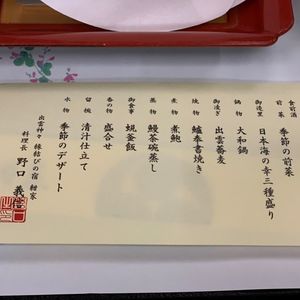 食前酒
前菜 季節の前菜
御造里 日本海の幸三種盛り
鍋物 大和鍋
御凌ぎ 出雲蕎麦
焼物 鱸奉書焼き
煮物 煮鮑
蒸物 鰻茶碗蒸し
御食事 蜆釜飯
香の物 盛合せ
留椀 清汁仕立て
水物 季節のデザート
出雲神々 縁結びの宿 紺家
料理長 野口 義